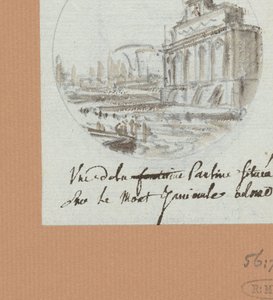 Vue de la fontaine Pauline située
sur le Mont Janicule
56: